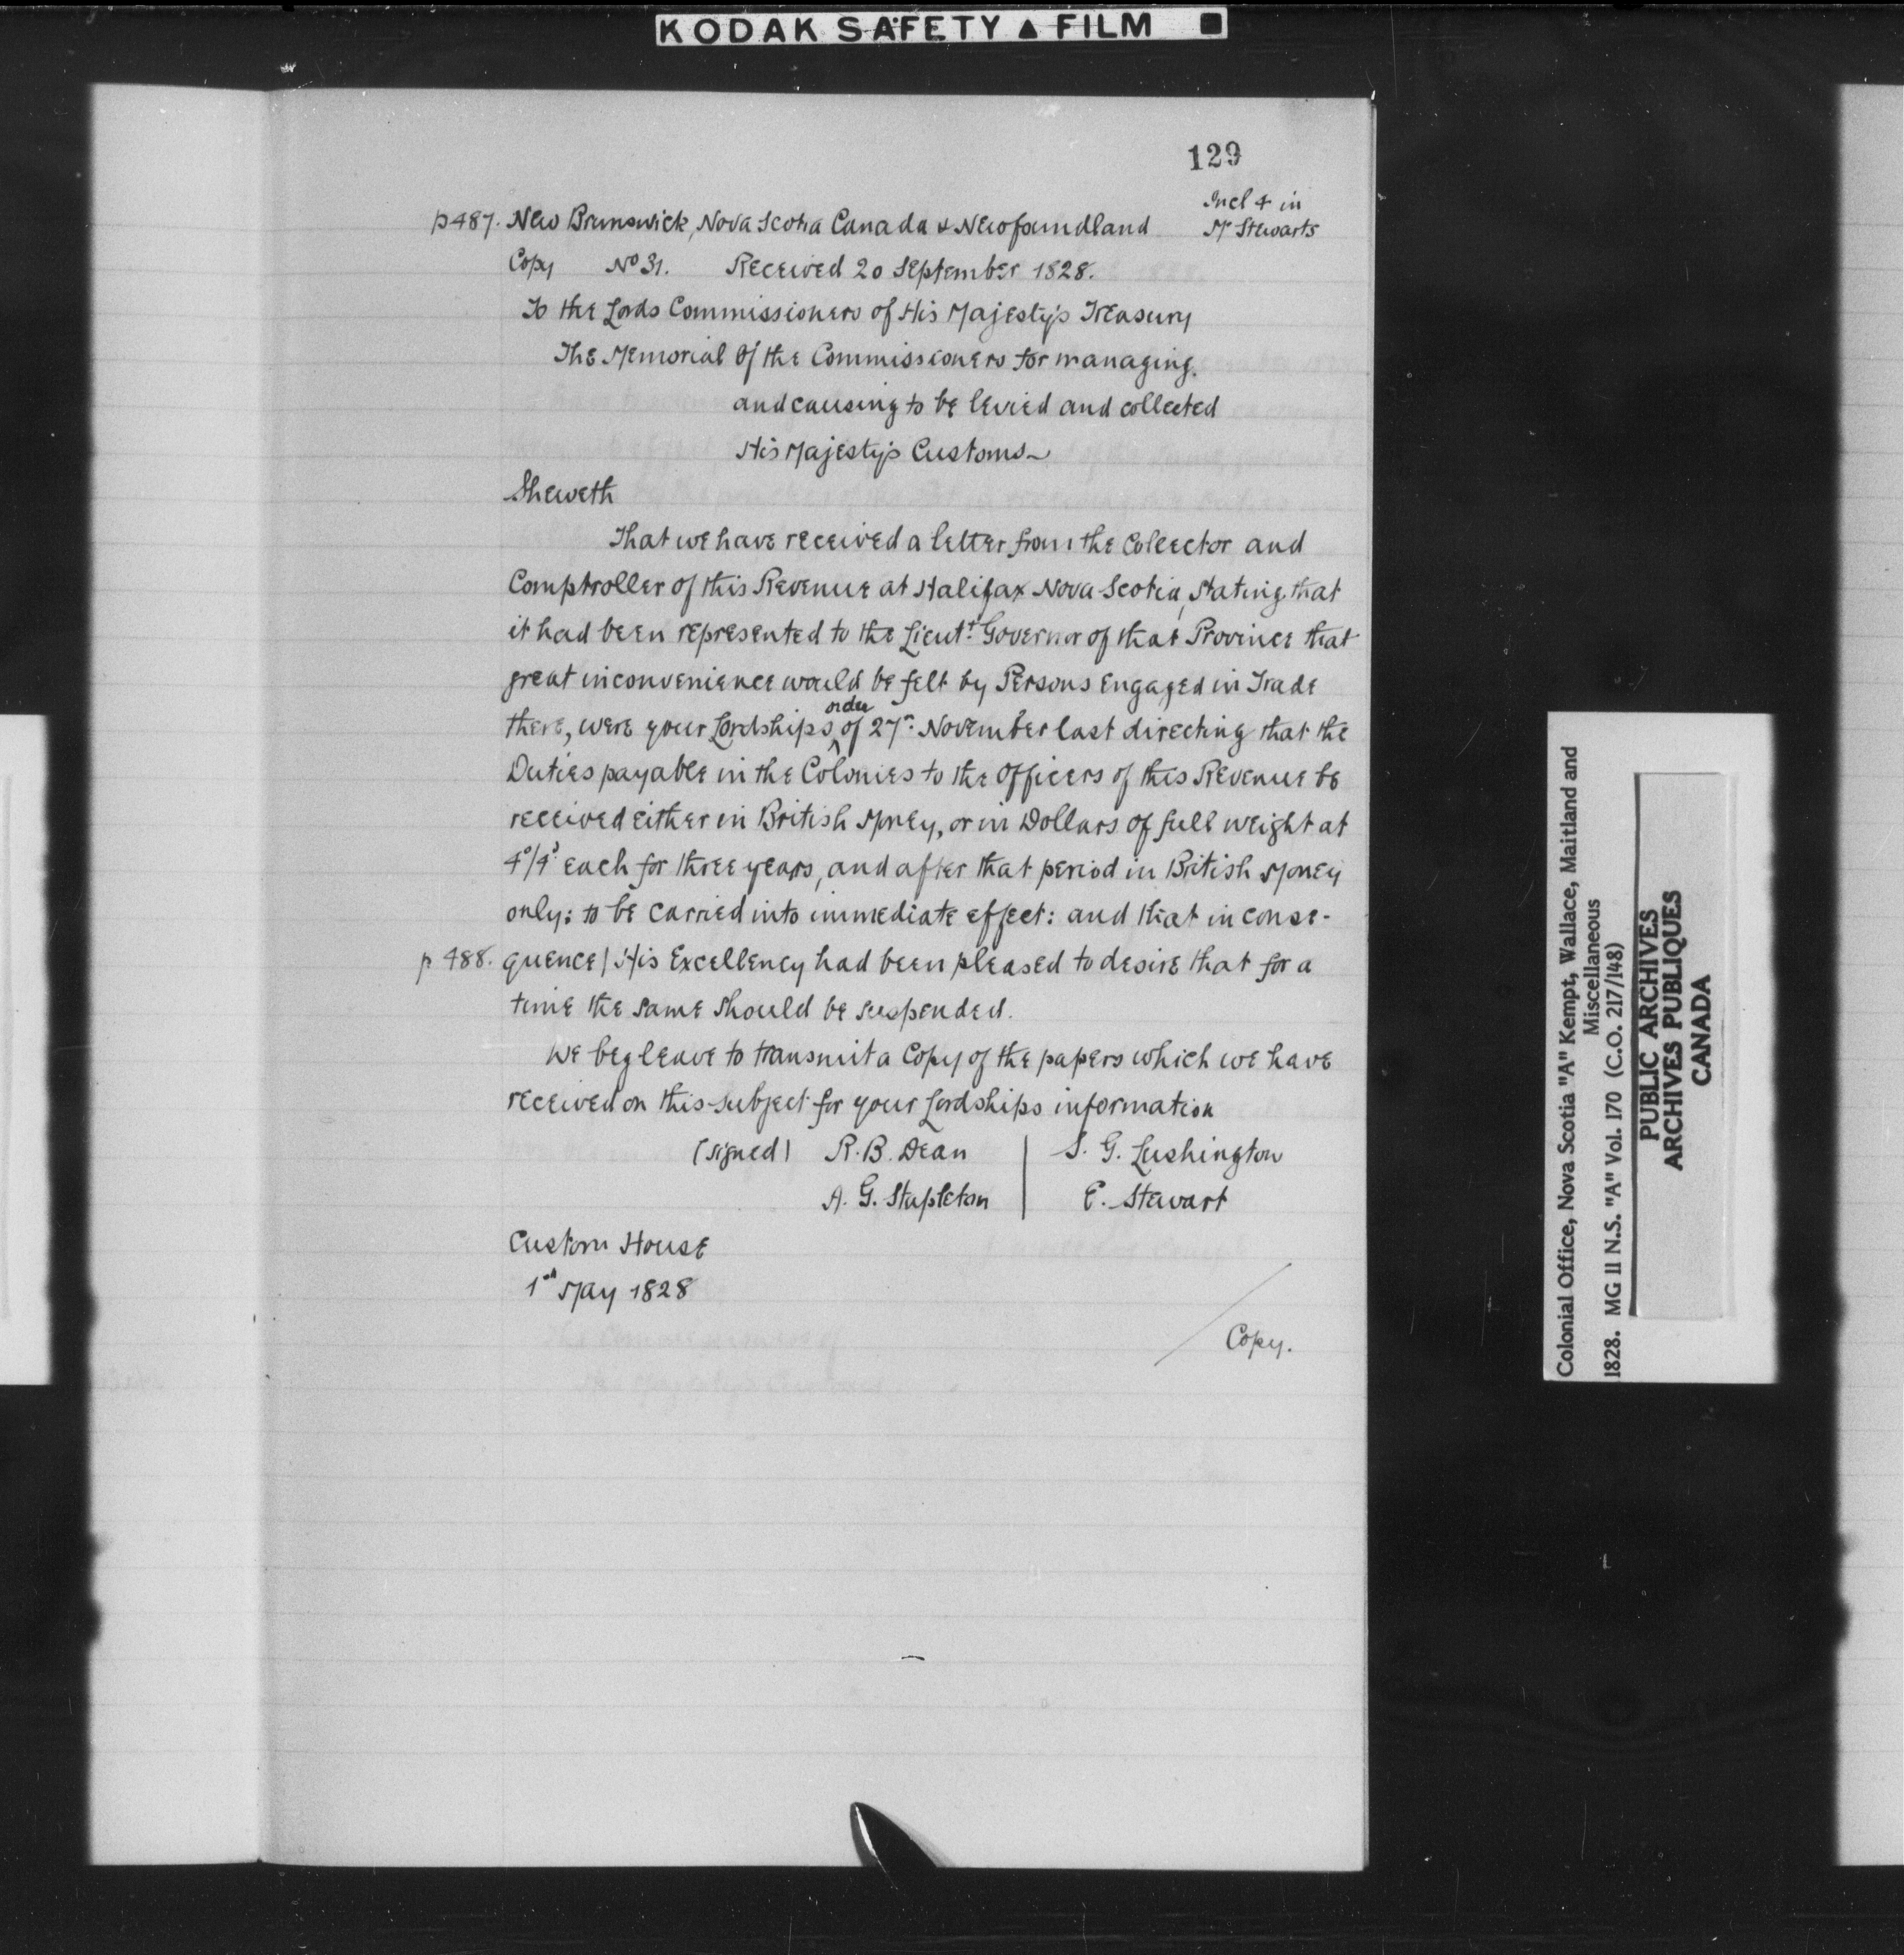 KODAK SAFETY ▲ FILM ■
129
Incl 4 in
Mr Stewarts
p 487. New Brunswick, Nova Scotia Canada & Newfoundland
Copy No 31. Received 20 September 1828.
To the Lords Commissioners of His Majesty's Treasury
The Memorial Of the Commissioners for managing
and causing to be levied and collected
His Majesty's Customs~
Sheweth
That we have received a letter from the Collector and
Comptroller of this Revenue at Halifax Nova Scotia, stating that
it had been represented to the Lieut.t Governor of that Province that
great inconvenience would be felt by Persons engaged in Trade
there, were your Lordships order of 27th November last directing that the
Duties payable in the Colonies to the Officers of this Revenue be
received either in British Money, or in Dollars of full weight at
4s/4d each for three years, and after that period in British Money
only: to be carried into immediate effect: and that in conse-
p 488. quence / His Excellency had been pleased to desire that for a
time the same should be suspended.
We beg leave to transmit a Copy of the papers which we have
received on this subject for your Lordships information
(signed) R. B. Dean | S. G. Lushington
A. G. Stapleton | E. Stewart
Custom House
1st May 1828
Copy.
Colonial Office, Nova Scotia "A" Kempt, Wallace, Maitland and
Miscellaneous
1828. MG 11 N.S. "A" Vol. 170 (C.O. 217/148)
PUBLIC ARCHIVES
ARCHIVES PUBLIQUES
CANADA